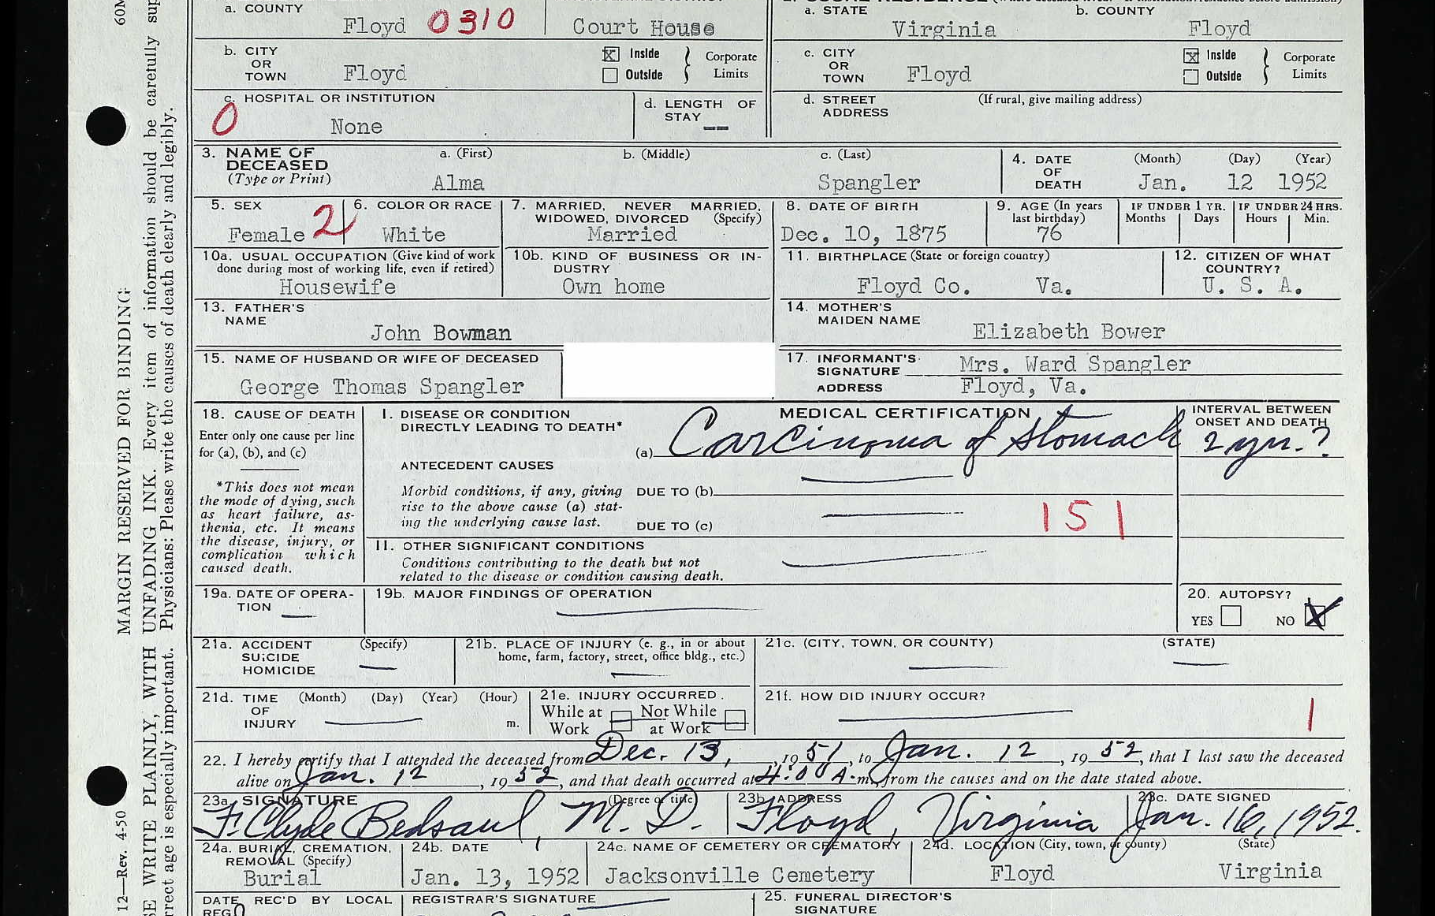 a. COUNTY
Floyd 0310
Court House
a. STATE
Virginia
b. COUNTY
Floyd
b. CITY OR TOWN
Floyd
Inside
Outside
Corporate Limits
c. CITY OR TOWN
Floyd
Inside
Outside
Corporate Limits
c. HOSPITAL OR INSTITUTION
0
None
d. LENGTH OF STAY
--
d. STREET ADDRESS
(If rural, give mailing address)
3. NAME OF DECEASED
(Type or Print)
a. (First)
Alma
b. (Middle)
c. (Last)
Spangler
4. DATE OF DEATH
(Month) (Day) (Year)
Jan. 12 1952
5. SEX
Female 2
6. COLOR OR RACE
White
7. MARRIED, NEVER MARRIED, WIDOWED, DIVORCED (Specify)
Married
8. DATE OF BIRTH
Dec. 10, 1875
9. AGE (In years last birthday)
76
IF UNDER 1 YR.
Months Days
IF UNDER 24 HRS.
Hours Min.
10a. USUAL OCCUPATION (Give kind of work done during most of working life, even if retired)
Housewife
10b. KIND OF BUSINESS OR INDUSTRY
Own home
11. BIRTHPLACE (State or foreign country)
Floyd Co. Va.
12. CITIZEN OF WHAT COUNTRY?
U. S. A.
13. FATHER'S NAME
John Bowman
14. MOTHER'S MAIDEN NAME
Elizabeth Bower
15. NAME OF HUSBAND OR WIFE OF DECEASED
George Thomas Spangler
17. INFORMANT'S SIGNATURE Mrs. Ward Spangler
ADDRESS Floyd, Va.
18. CAUSE OF DEATH
Enter only one cause per line for (a), (b), and (c)
*This does not mean the mode of dying, such as heart failure, asthenia, etc. It means the disease, injury, or complication which caused death.
MEDICAL CERTIFICATION
I. DISEASE OR CONDITION DIRECTLY LEADING TO DEATH*
(a) Carcinoma of Stomach
INTERVAL BETWEEN ONSET AND DEATH
2 yrs.?
ANTECEDENT CAUSES
Morbid conditions, if any, giving rise to the above cause (a) stating the underlying cause last.
DUE TO (b)
DUE TO (c)
151
11. OTHER SIGNIFICANT CONDITIONS
Conditions contributing to the death but not related to the disease or condition causing death.
19a. DATE OF OPERATION
19b. MAJOR FINDINGS OF OPERATION
20. AUTOPSY?
YES NO X
21a. ACCIDENT SUICIDE HOMICIDE
(Specify)
21b. PLACE OF INJURY (e. g., in or about home, farm, factory, street, office bldg., etc.)
21c. (CITY, TOWN, OR COUNTY) (STATE)
21d. TIME OF INJURY
(Month) (Day) (Year) (Hour)
m.
21e. INJURY OCCURRED
While at Work
Not While at Work
21f. HOW DID INJURY OCCUR?
1
22. I hereby certify that I attended the deceased from Dec. 13, 1951, to Jan. 12, 1952, that I last saw the deceased
alive on Jan. 12, 1952, and that death occurred at 4:00 A.m., from the causes and on the date stated above.
23a. SIGNATURE (Degree or title)
F. Clyde Bedsaul, M. D.
23b. ADDRESS
Floyd, Virginia
23c. DATE SIGNED
Jan. 16, 1952.
24a. BURIAL, CREMATION, REMOVAL (Specify)
Burial
24b. DATE
Jan. 13, 1952
24c. NAME OF CEMETERY OR CREMATORY
Jacksonville Cemetery
24d. LOCATION (City, town, or county) (State)
Floyd Virginia
DATE REC'D BY LOCAL REG.
REGISTRAR'S SIGNATURE
25. FUNERAL DIRECTOR'S SIGNATURE
60M
12—Rev. 4-50
MARGIN RESERVED FOR BINDING
SE WRITE PLAINLY, WITH UNFADING INK. Every item of information should be carefully sup
rrect age is especially important. Physicians: Please write the causes of death clearly and legibly.